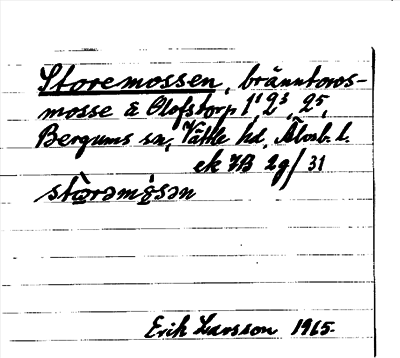 Storemossen, bränntorvs-
mosse å Olofstorp 1¹, 2³, 2⁵,
Bergums sn, Vättle hd, Älvsb. l.
ek 7B 2g/31
Erik Larsson 1965.